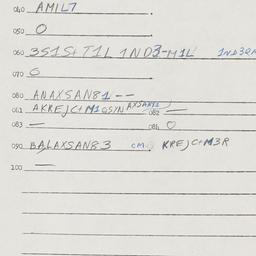 040 AMIL7
050 0
060 3S1S+T1L 1ND3-M1L 1ND3R
070 0
080 ANAXSAN81 --
081 AKREJC+M1QSYN AXSAN81 082 —
083 — 084 0
090 BALAXSAN83 CM. KREJC+M3R
100 —